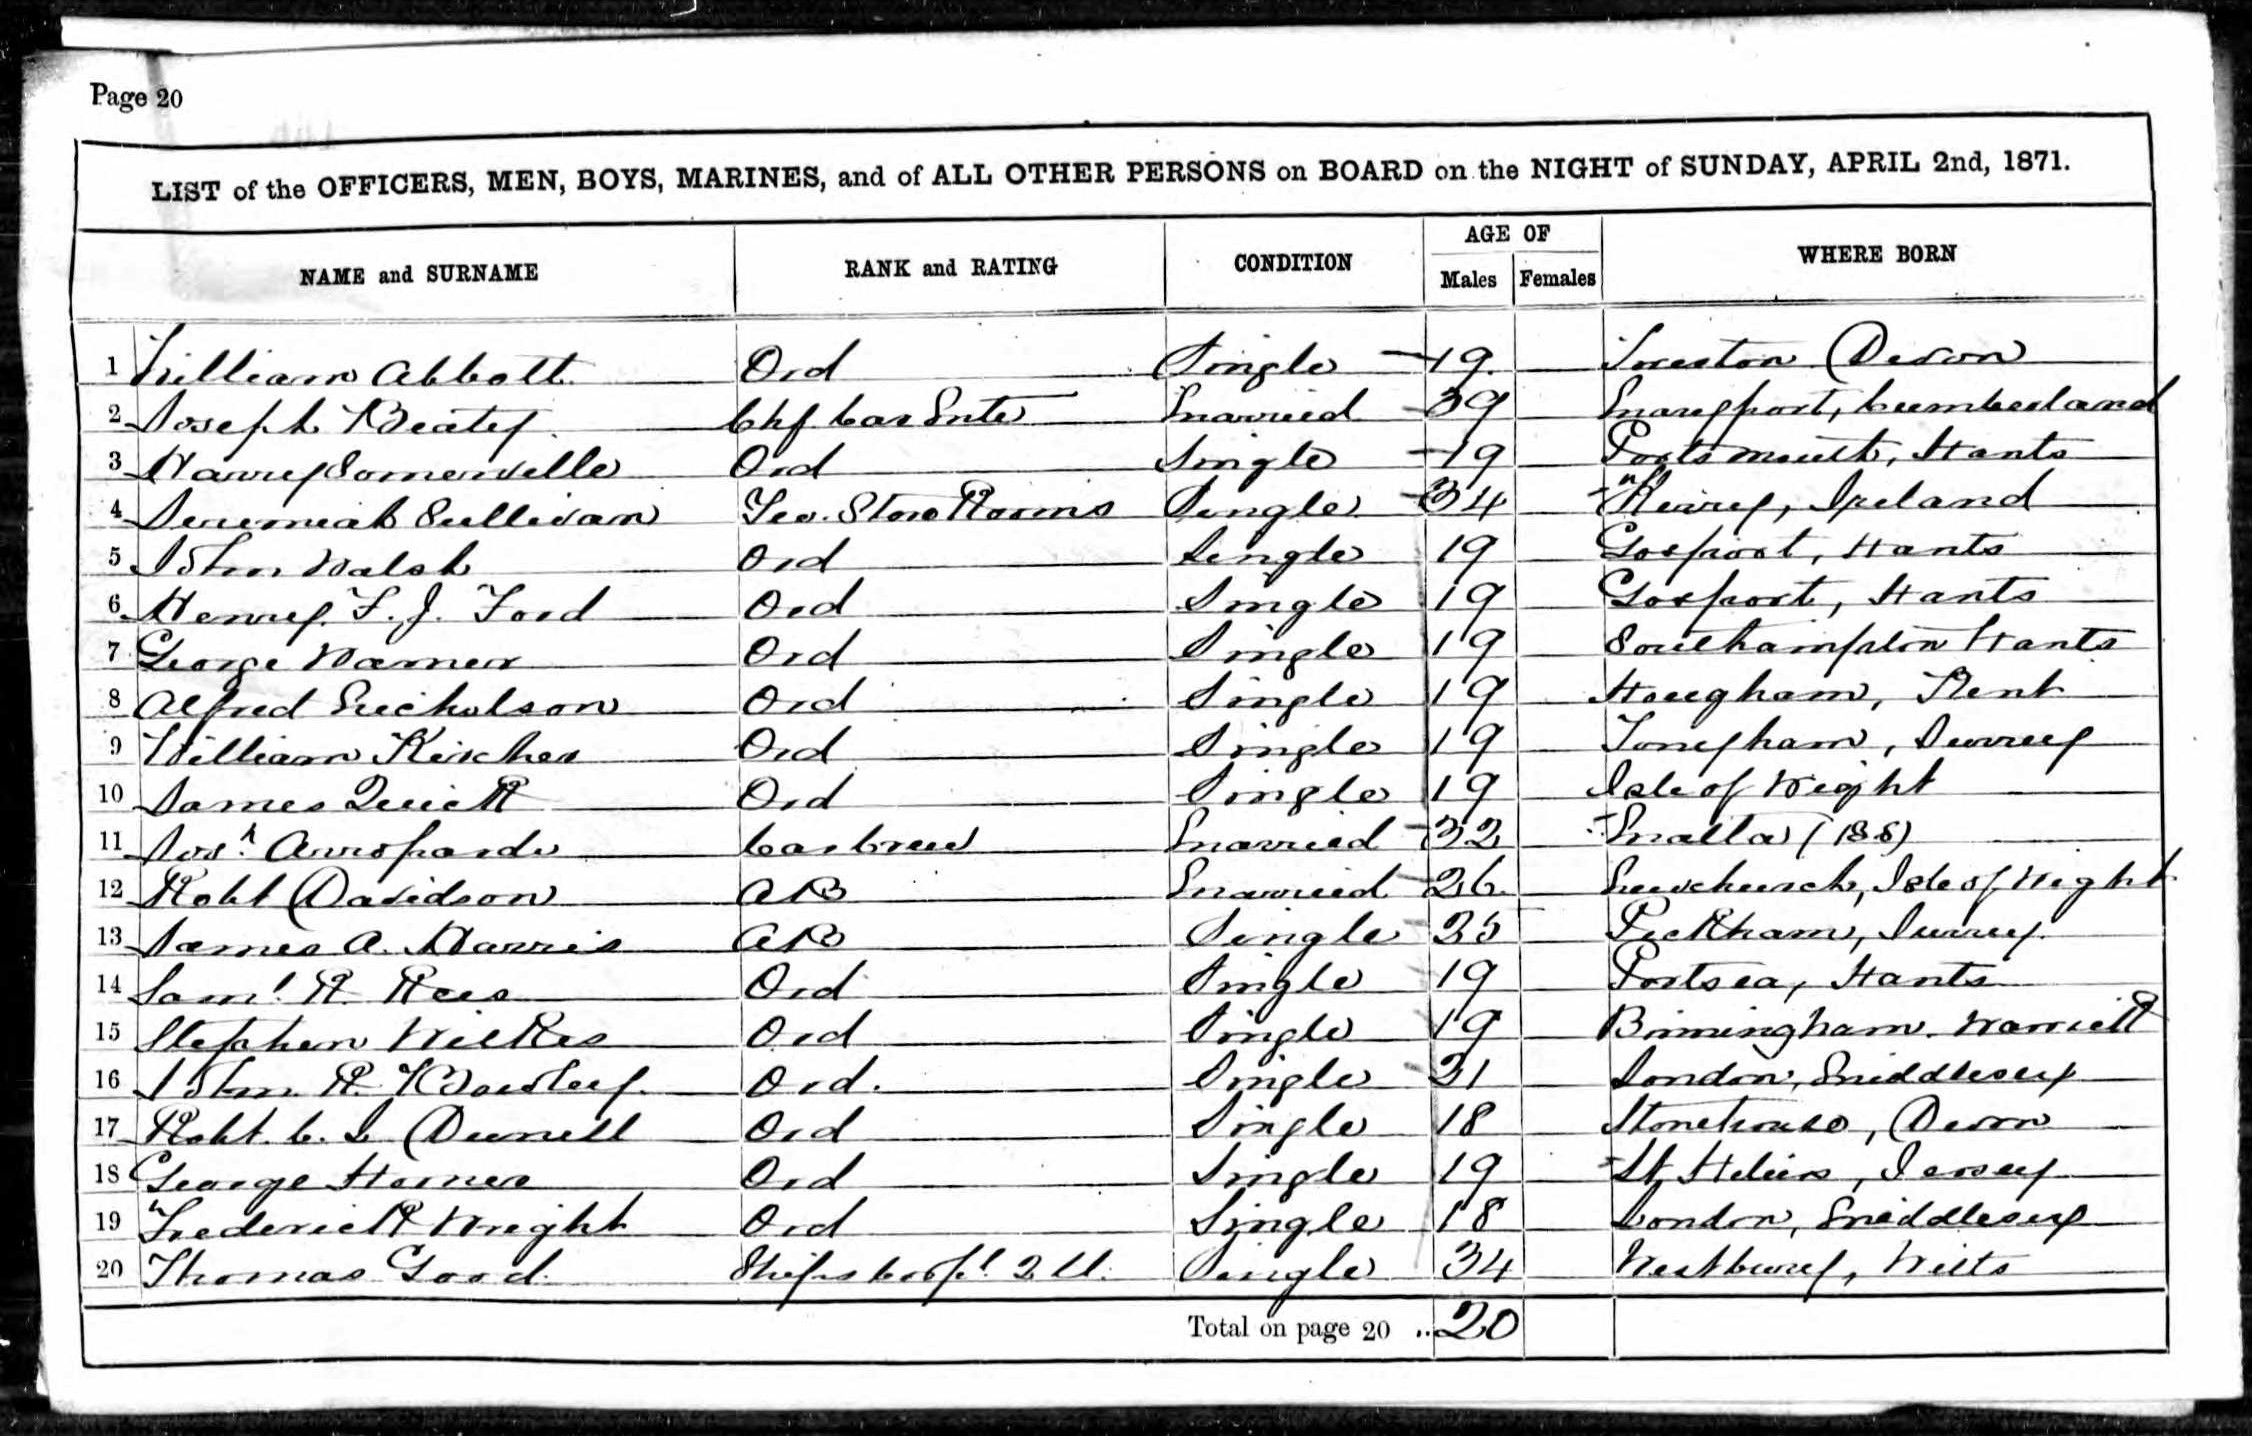 Page 20
LIST of the OFFICERS, MEN, BOYS, MARINES, and of ALL OTHER PERSONS on BOARD on the NIGHT of SUNDAY, APRIL 2nd, 1871.
NAME and SURNAME RANK and RATING CONDITION AGE OF Males Females WHERE BORN
1 William Abbott Ord Single 19 Devon
2 Joseph Beaty Chf Married 39 Maryport, Cumberland
3 Harry Somerville Ord Single 19 Portsmouth, Hants
4 Jeremiah Sullivan Store Rooms Single 34 Kerry, Ireland
5 John Walsh Ord Single 19 Gosport, Hants
6 Henry F. J. Ford Ord Single 19 Gosport, Hants
7 George Warner Ord Single 19 Southampton Hants
8 Alfred Nicholson Ord Single 19 Hougham, Kent
9 William Kircher Ord Single 19 Tongham, Surrey
10 James Quick Ord Single 19 Isle of Wight
11 Josh. Married 32 Malta (BS)
12 Robt Davidson AB Married 26 Newchurch, Isle of Wight
13 James A. Harris AB Single 25 Peckham, Surrey
14 Saml. R. Rees Ord Single 19 Portsea, Hants
15 Stephen Wilkes Ord Single 19 Birmingham. Warwick
16 John R. Ord. Single 21 London, Middlesex
17 Robt. C. J. Ord Single 18 Stonehouse, Devon
18 George Horner Ord Single 19 St Heliers, Jersey
19 Frederick Wright Ord Single 18 London, Middlesex
20 Thomas Good Ships Corpl. 2 Cl. Single 34 Westbury, Wilts
Total on page 20 .. 20